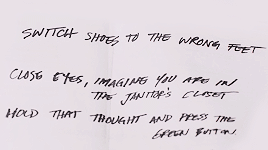 SWITCH SHOES TO THE WRONG FEET
CLOSE EYES, IMAGINE YOU ARE IN
THE JANITOR'S CLOSET
HOLD THAT THOUGHT AND PRESS THE
GREEN BUTTON